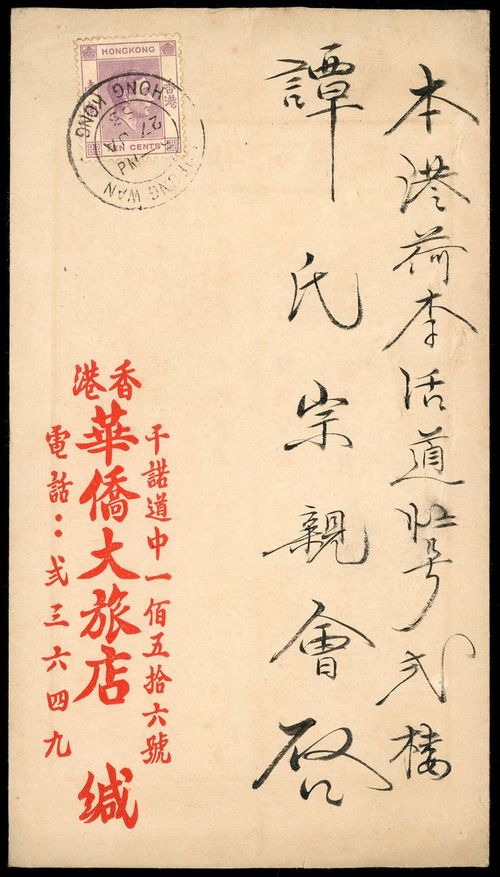 本港荷李活道号弍樓
譚氏宗親會啟
HONGKONG
香港
TEN CENTS
SHEUNG WAN
HONG KONG
PM
27 JA
香港
干諾道中一佰五拾六號
華僑大旅店 緘
電話：弍三六四九